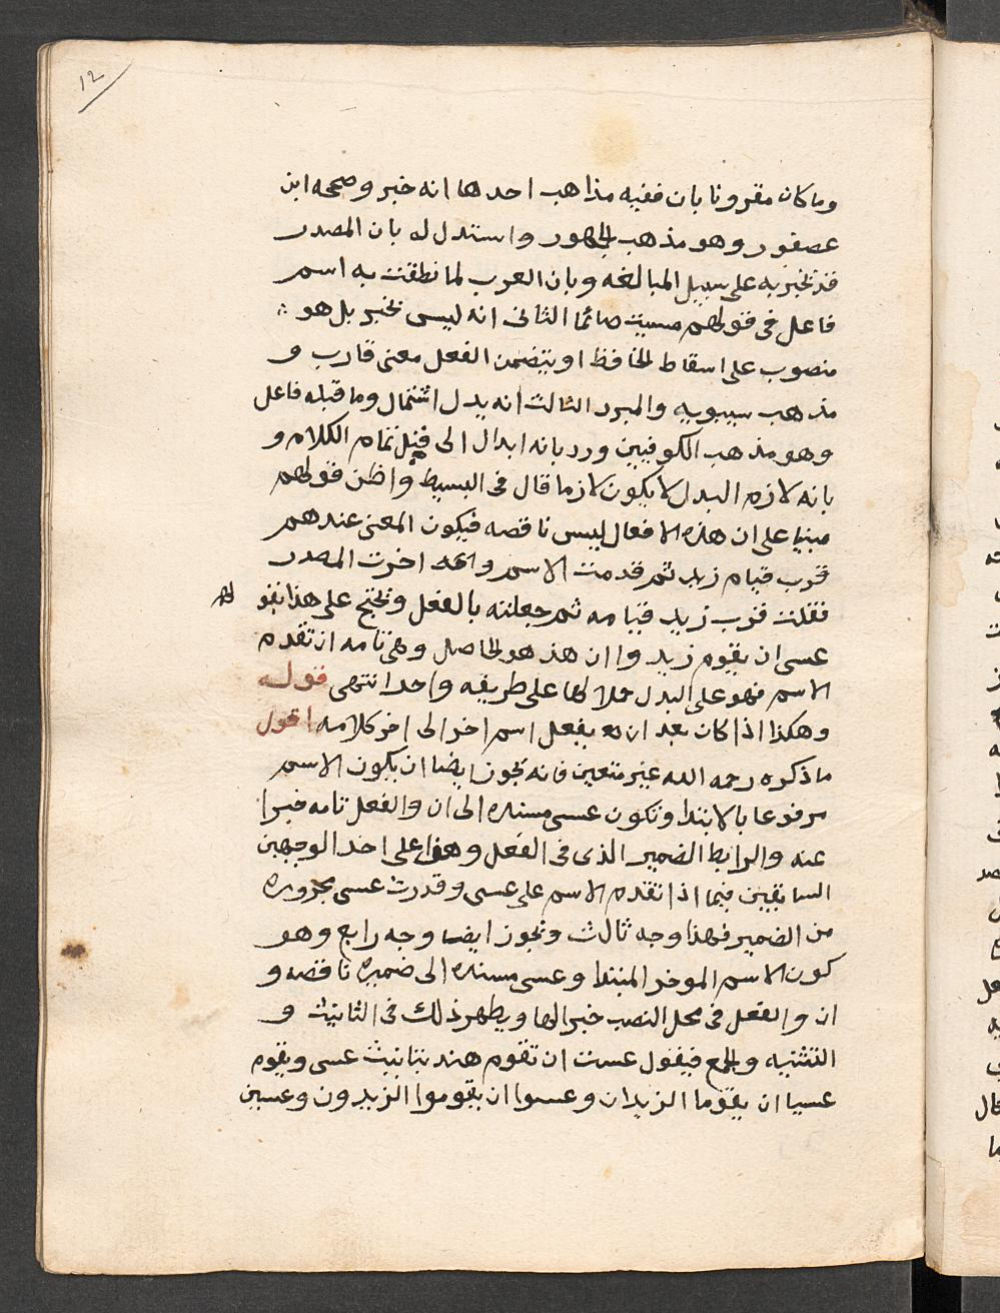 12
وما كان مقرونا بان ففيه مذاهب احدها انه خبر وصححه ابن
عصفور وهو مذهب الجهور واستدل له بان المصدر
قد يخبر به على سبيل المبالغه وبان العرب لما نطقت به اسم
فاعل فى قولهم عسيت صائما الثانى انه ليس بخبر بل هو
منصوب على اسقاط الخافظ او بتضمن الفعل معنى قارب و
مذهب سيبويه والمبرد الثالث انه بدل اشتمال وما قبله فاعل
وهو مذهب الكوفيين ورد بانه ابدال الى قبل تمام الكلام و
بانه لازم البدل لا يكون لازما قال فى البسيط واظن قولهم
مبنيا على ان هذه الافعال ليس ناقصه فيكون المعنى عندهم
قرب قيام زيد ثم قدمت الاسم و اخرت المصدر
فقلت قرب زيد قيامه ثم جعلته بالفعل ونحتج على هذا بقو لهم
عسى ان يقوم زيد وا ان هذ هو الحاصل وهى تامه ان تقدم
الاسم فهو على البدل حملا لها على طريقه واحد انتهى قوله
وهكذا اذا كان بعد ان يفعل اسم اخر الى اخر كلامه اقول
ما ذكره رحمه الله غير متعين فانه يجوز ايضا ان يكون الاسم
مرفوعا بالابتدا وتكون عسى مسنده الى ان والفعل تامه خبرا
عنه والرابط الضمير الذى فى الفعل وهذا على احد الوجهين
السابقين فيما اذا تقدم الاسم على عسى وقدرت عسى مجروده
من الضمير فهذا وجه ثالث ويجوز ايضا وجه رابع وهو
كون الاسم الموخر المبتدا وعسى مسنده الى ضميره ناقصه و
ان والفعل فى محل النصب خبر الها ويظهر ذلك فى التانيث و
التثنيه والجمع فيقول عست ان تقوم هند بتانيث عسى ويقوم
عسيا ان يقوما الزيدان وعسوا ان يقوموا الزيدون وعسين